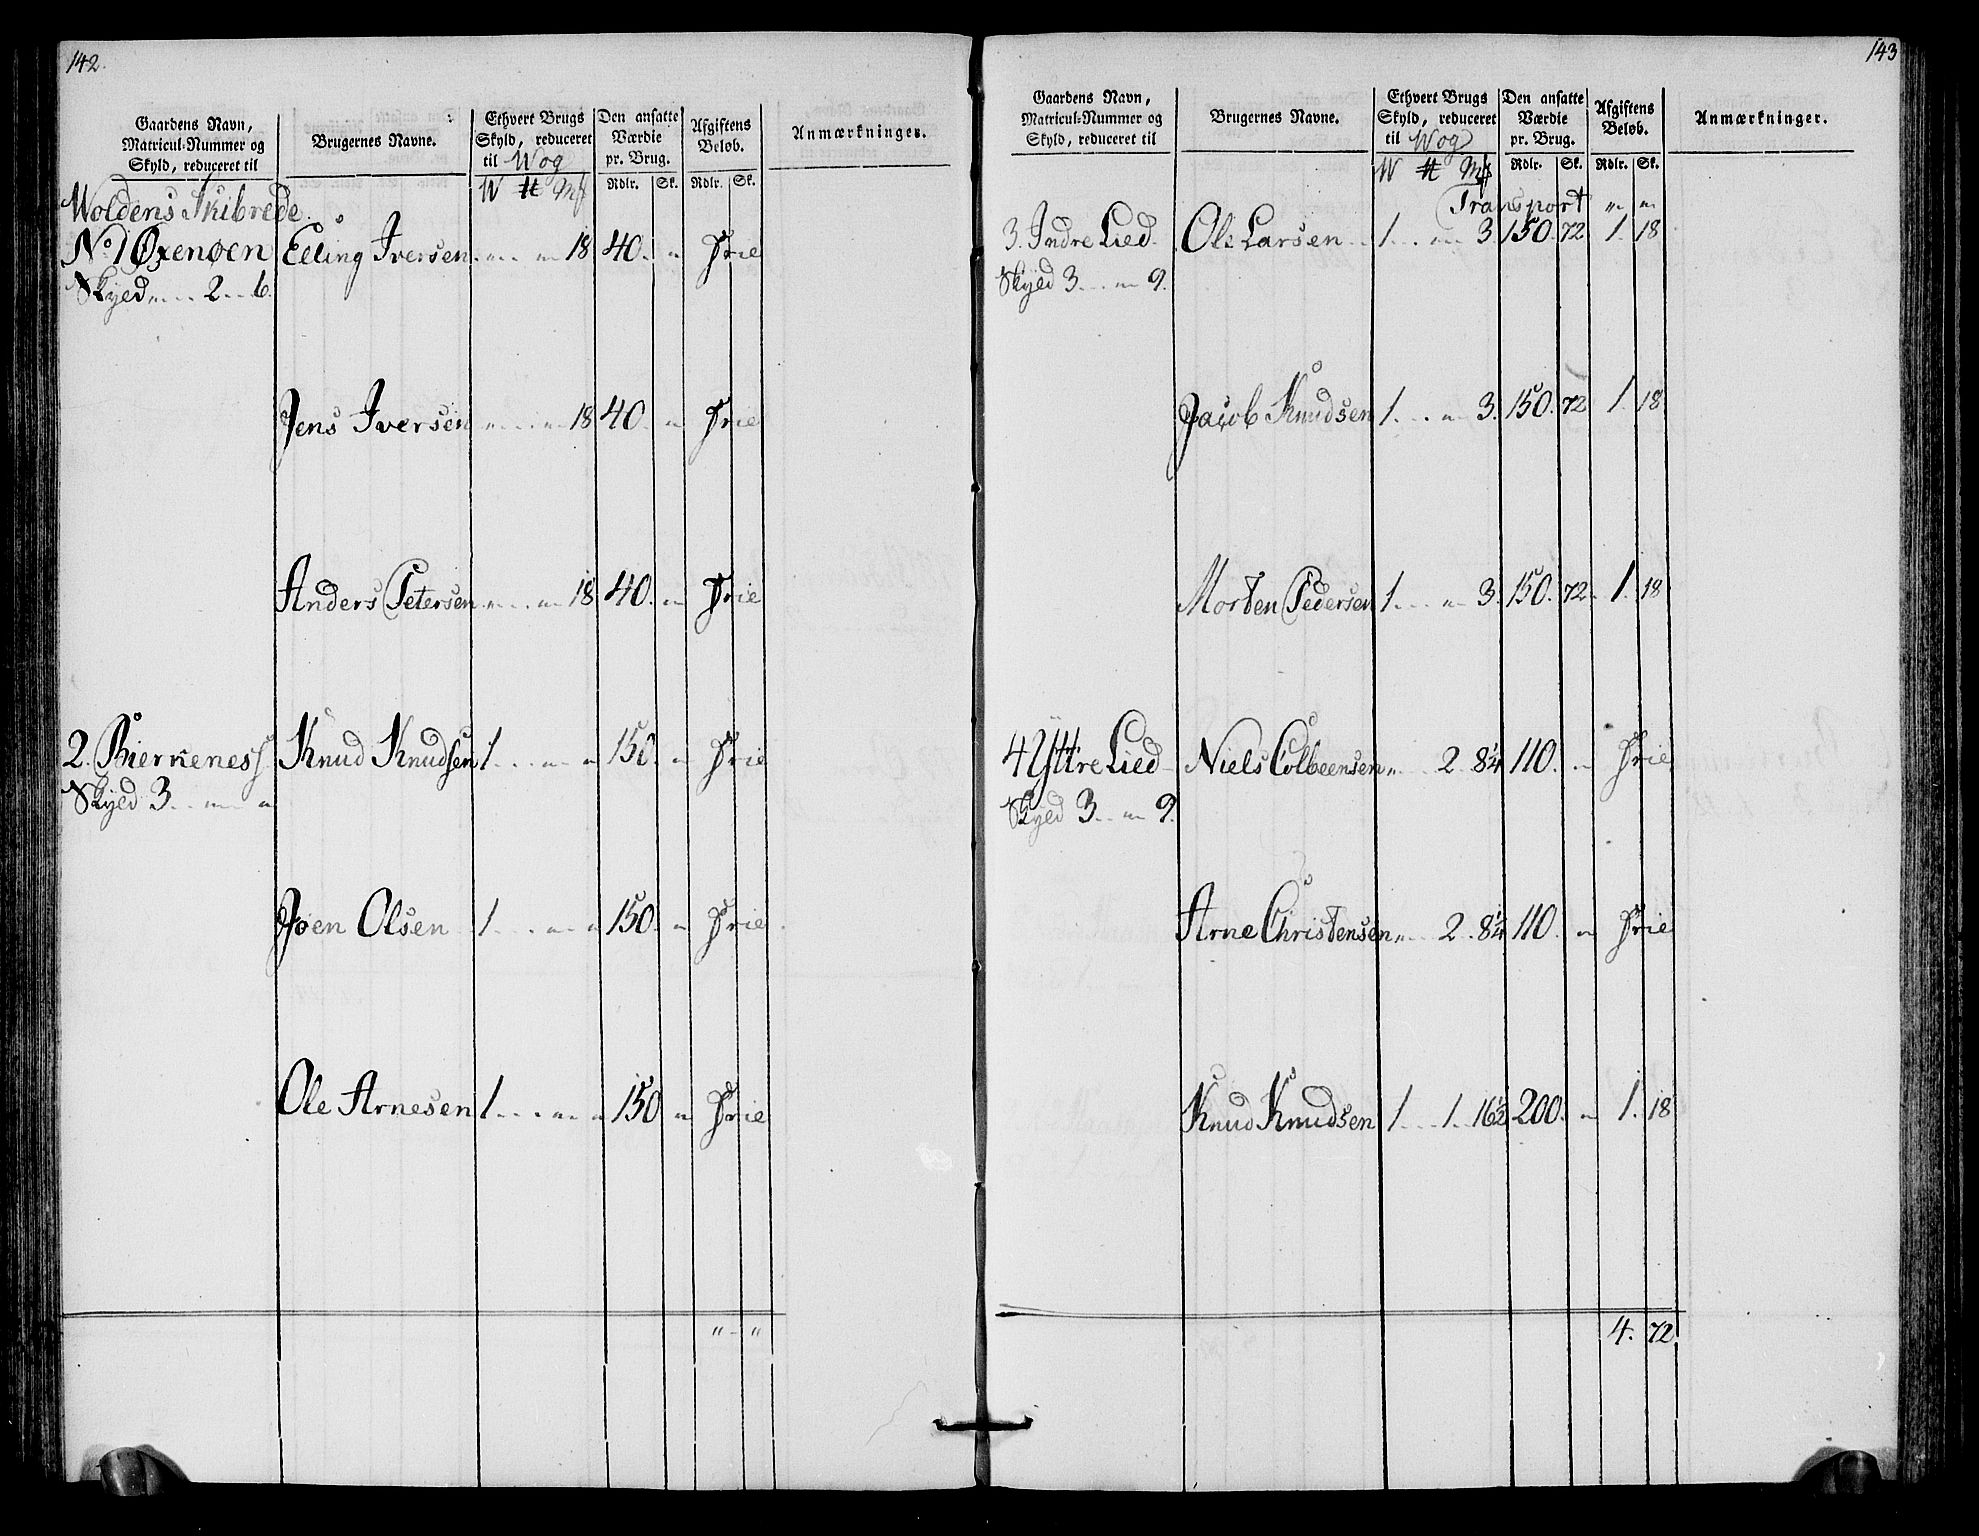 142.
Gaardens Navn, Matricul-Nummer og Skyld, reduceret til | Brugernes Navne. | Ethvert Brugs Skyld, reduceret til Wog | Den ansatte Værdie pr. Brug. | Afgiftens Beløb. | Anmærkninger.
W ℔ Mß | Rdlr. | Sk. | Rdlr. | Sk.
Woldens Skibrede.
No 1 Oxenøen | Elling Iversen | " " 18 | 40. " | Frie
Skyld " 2 " 6.
Jens Iversen | " " 18 | 40. " | Frie
Anders Petersen | " " 18 | 40. " | Frie
2. Biermenes | Knud Knudsen | 1 " " | 150. " | Frie
Skyld 3 " "
Joen Olsen | 1 " " | 150. " | Frie
Ole Arnesen | 1 " " | 150 " | Frie
" - "
143
Gaardens Navn, Matricul-Nummer og Skyld, reduceret til | Brugernes Navne. | Ethvert Brugs Skyld, reduceret til Wog | Den ansatte Værdie pr. Brug. | Afgiftens Beløb. | Anmærkninger.
W ℔ Mß | Rdlr. | Sk. | Rdlr. | Sk.
Transport " "
3. Indre Lied | Ole Larsen | 1 " 3. | 150. 72 | 1. 18
Skyld 3 " 9.
Jacob Knudsen | 1 " 3. | 150. 72 | 1. 18
Morten Pedersen | 1 " 3. | 150. 72 | 1. 18
4 Yttre Lied | Niels Colbeensen | " 2 8 1/4 | 110. " | Frie
Skyld 3 " 9.
Arne Christensen | " 2 8 1/4 | 110. " | Frie
Knud Knudsen | 1 1 16 1/2 | 200. " | 1. 18
4. 72